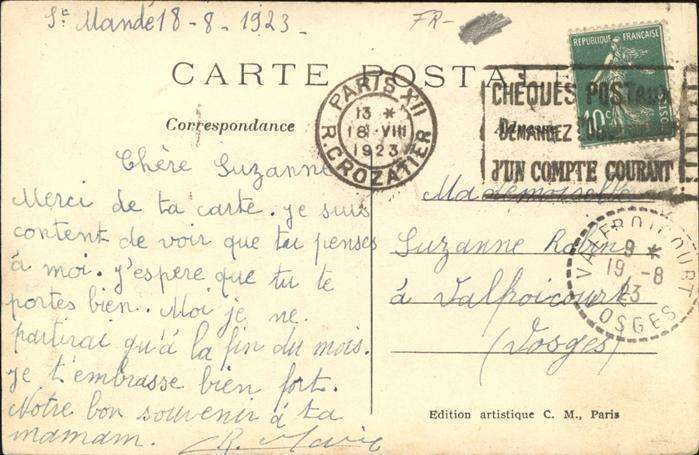 St Mandé 18-8-1923-
FR-
CARTE POSTALE
Correspondance
REPUBLIQUE FRANÇAISE
10c
PARIS XII
13 *
18 VIII
1923
R. CROZATIER
CHEQUES POSTAUX
DEMANDEZ
D'UN COMPTE COURANT
Chère Suzanne
Merci de ta carte. je suis
content de voir que tu penses
à moi. j'espere que tu te
portes bien. Moi je ne
partirai qu'à la fin du mois.
Je t'embrasse bien fort.
Notre bon souvenir à ta
mamam.
Mademoiselle
Suzanne Robin
à Valfroicourt
(Vosges)
VALFROICOURT
9 *
19 -8
23
VOSGES
Edition artistique C. M., Paris